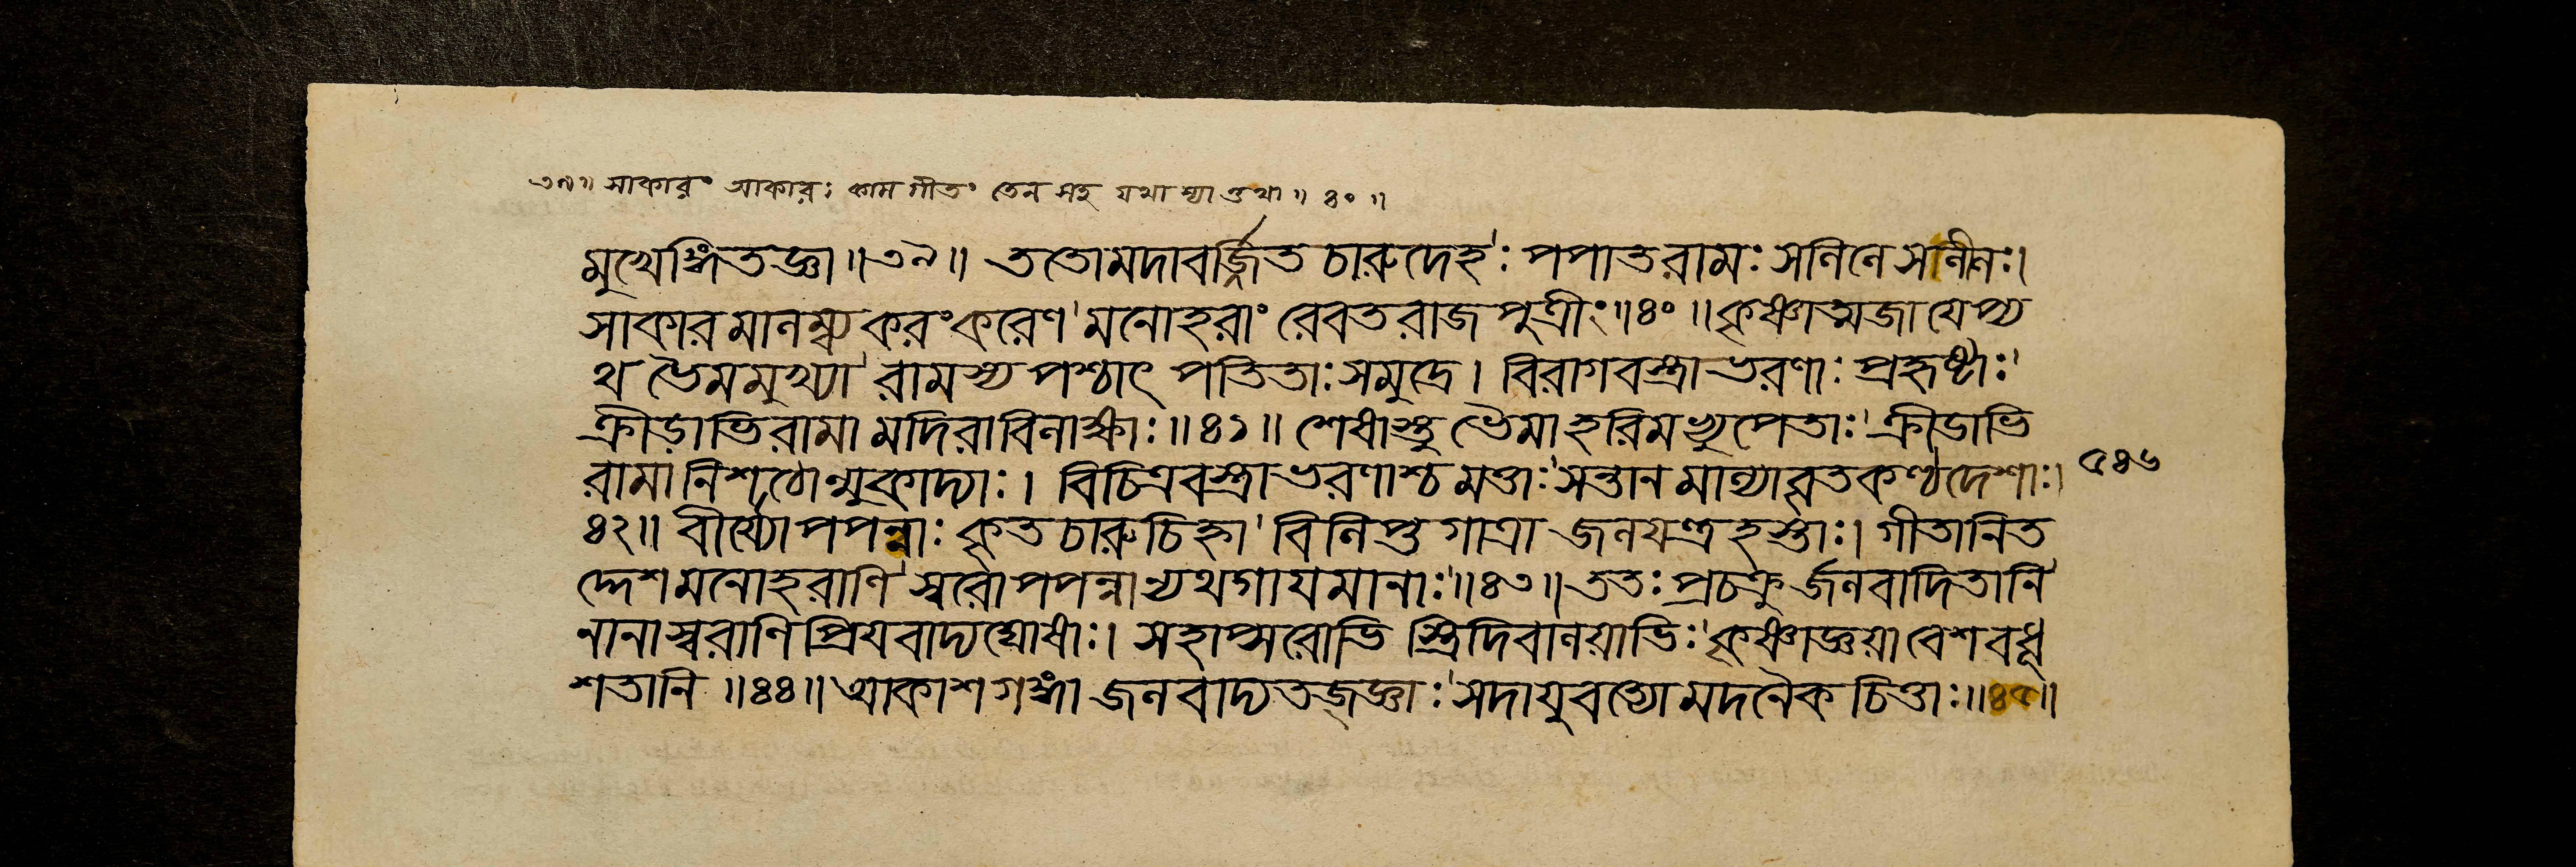 ৩৯॥ সাকারং আকারঃ কাম গীতং তেন সহ যথা স্যাত্তথা॥ ৪০ ॥
মুখেঙ্গিতজ্ঞা॥৩৯॥ ততোমদাবর্জ্জিত চারুদেহঃ পপাত রামঃ সলিলে সলীলঃ।
সাকারমালম্ব্য করংকরেণ মনোহরাং রেবতরাজপুত্রীং॥৪০॥ কৃষ্ণাত্মজা যেপ্য
থ ভৈমমুখ্যা রামস্য পশ্চাৎ পতিতাঃ সমুদ্রে। বিরাগবস্ত্রাভরণাঃ প্রহৃষ্টাঃ
ক্রীড়াভিরামা মদিরাবিলাক্ষাঃ॥৪১॥ শেষাস্তু ভৈমা হরিমভ্যুপেতাঃ ক্রীডাভি
রামানিশঠোল্মুকাদ্যাঃ। বিচিত্রবস্ত্রাভরণাশ্চ মত্তাঃ সন্তানমাল্যাবৃতকণ্ঠদেশাঃ। ৫৪৬
৪২॥ বীর্য্যোপপন্নাঃ কৃত চারুচিহ্না বিলিপ্তগাত্রা জলযন্ত্রহস্তাঃ। গীতানিত
দ্দেশমনোহরাণি স্বরোপপন্নান্যথগাযমানাঃ॥৪৩॥ ততঃ প্রচক্রুর্জলবাদিতানি
নানাস্বরাণি প্রিযবাদ্যঘোষাঃ। সহাপ্সরোভি স্ত্রিদিবালয়াভিঃ কৃষ্ণাজ্ঞয়া বেশবধূ
শতানি ॥৪৪॥ আকাশগঙ্গা জলবাদ্যতজ্জ্ঞাঃ সদাযুবত্যোমদনৈকচিত্তাঃ॥৪৫॥